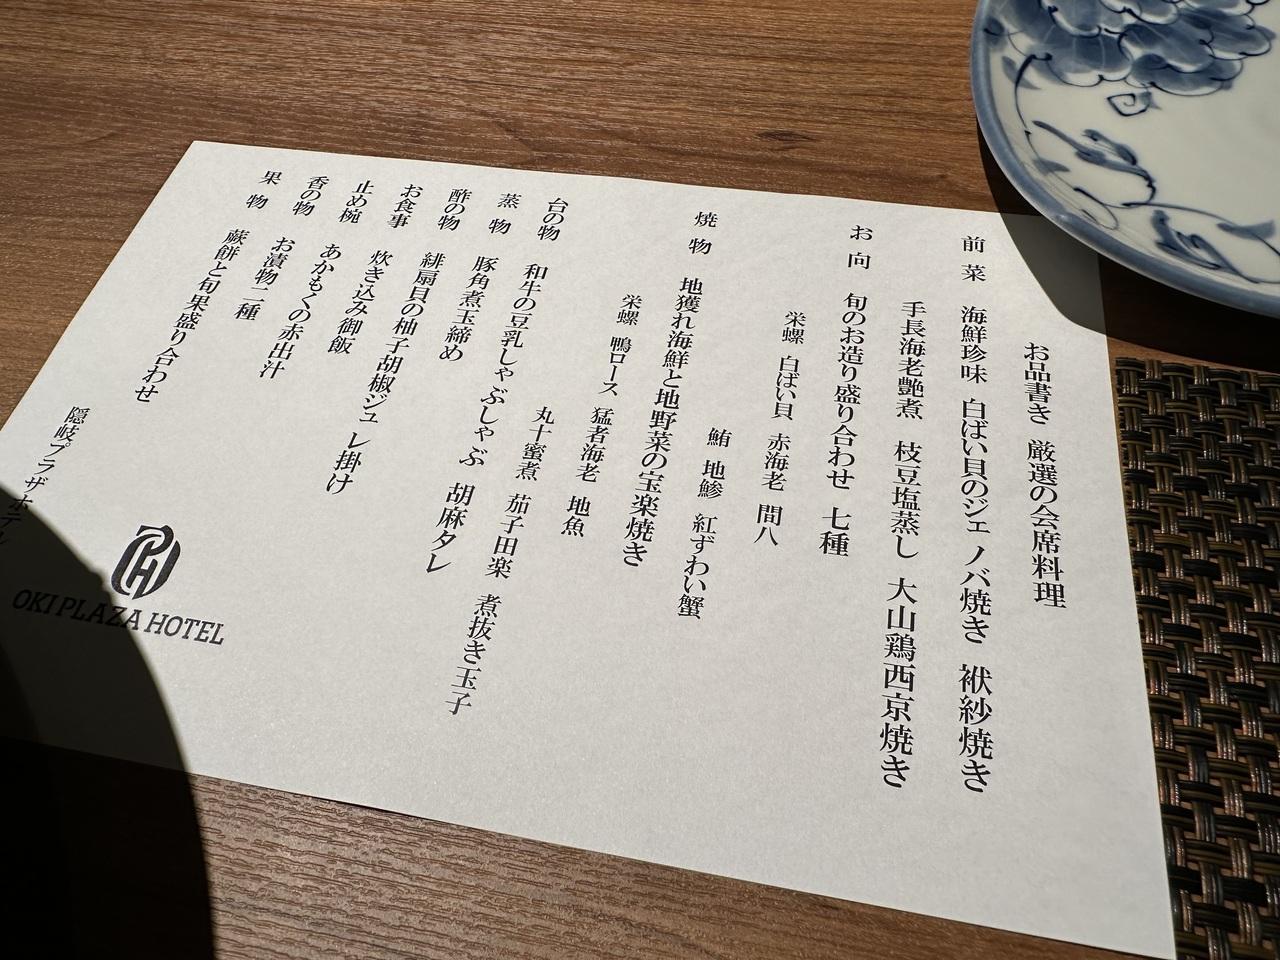 お品書き 厳選の会席料理
前菜 海鮮珍味 白ばい貝のジェノバ焼き 袱紗焼き
手長海老艶煮 枝豆塩蒸し 大山鶏西京焼き
お向 旬のお造り盛り合わせ 七種
栄螺 白ばい貝 赤海老 間八
鮪 地鯵 紅ずわい蟹
焼物 地獲れ海鮮と地野菜の宝楽焼き
栄螺 鴨ロース 猛者海老 地魚
丸十蜜煮 茄子田楽 煮抜き玉子
台の物 和牛の豆乳しゃぶしゃぶ 胡麻タレ
蒸物 豚角煮玉締め
酢の物 緋扇貝の柚子胡椒ジュレ掛け
お食事 炊き込み御飯
止め椀 あかもくの赤出汁
香の物 お漬物二種
果物 蕨餅と旬果盛り合わせ
隠岐プラザホテル
OKI PLAZA HOTEL